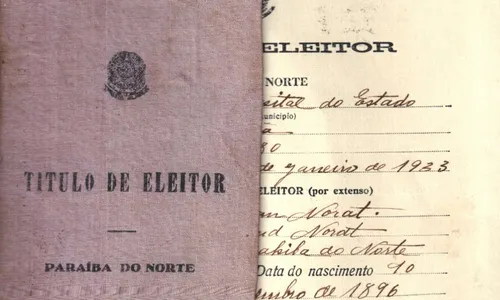 TITULO DE ELEITOR
PARAÍBA DO NORTE
ELEITOR
NORTE
do Estado
80
de janeiro de 1923
ELEITOR (por extenso)
Norat.
Norat
do Norte
Data do nascimento 10
de 1896